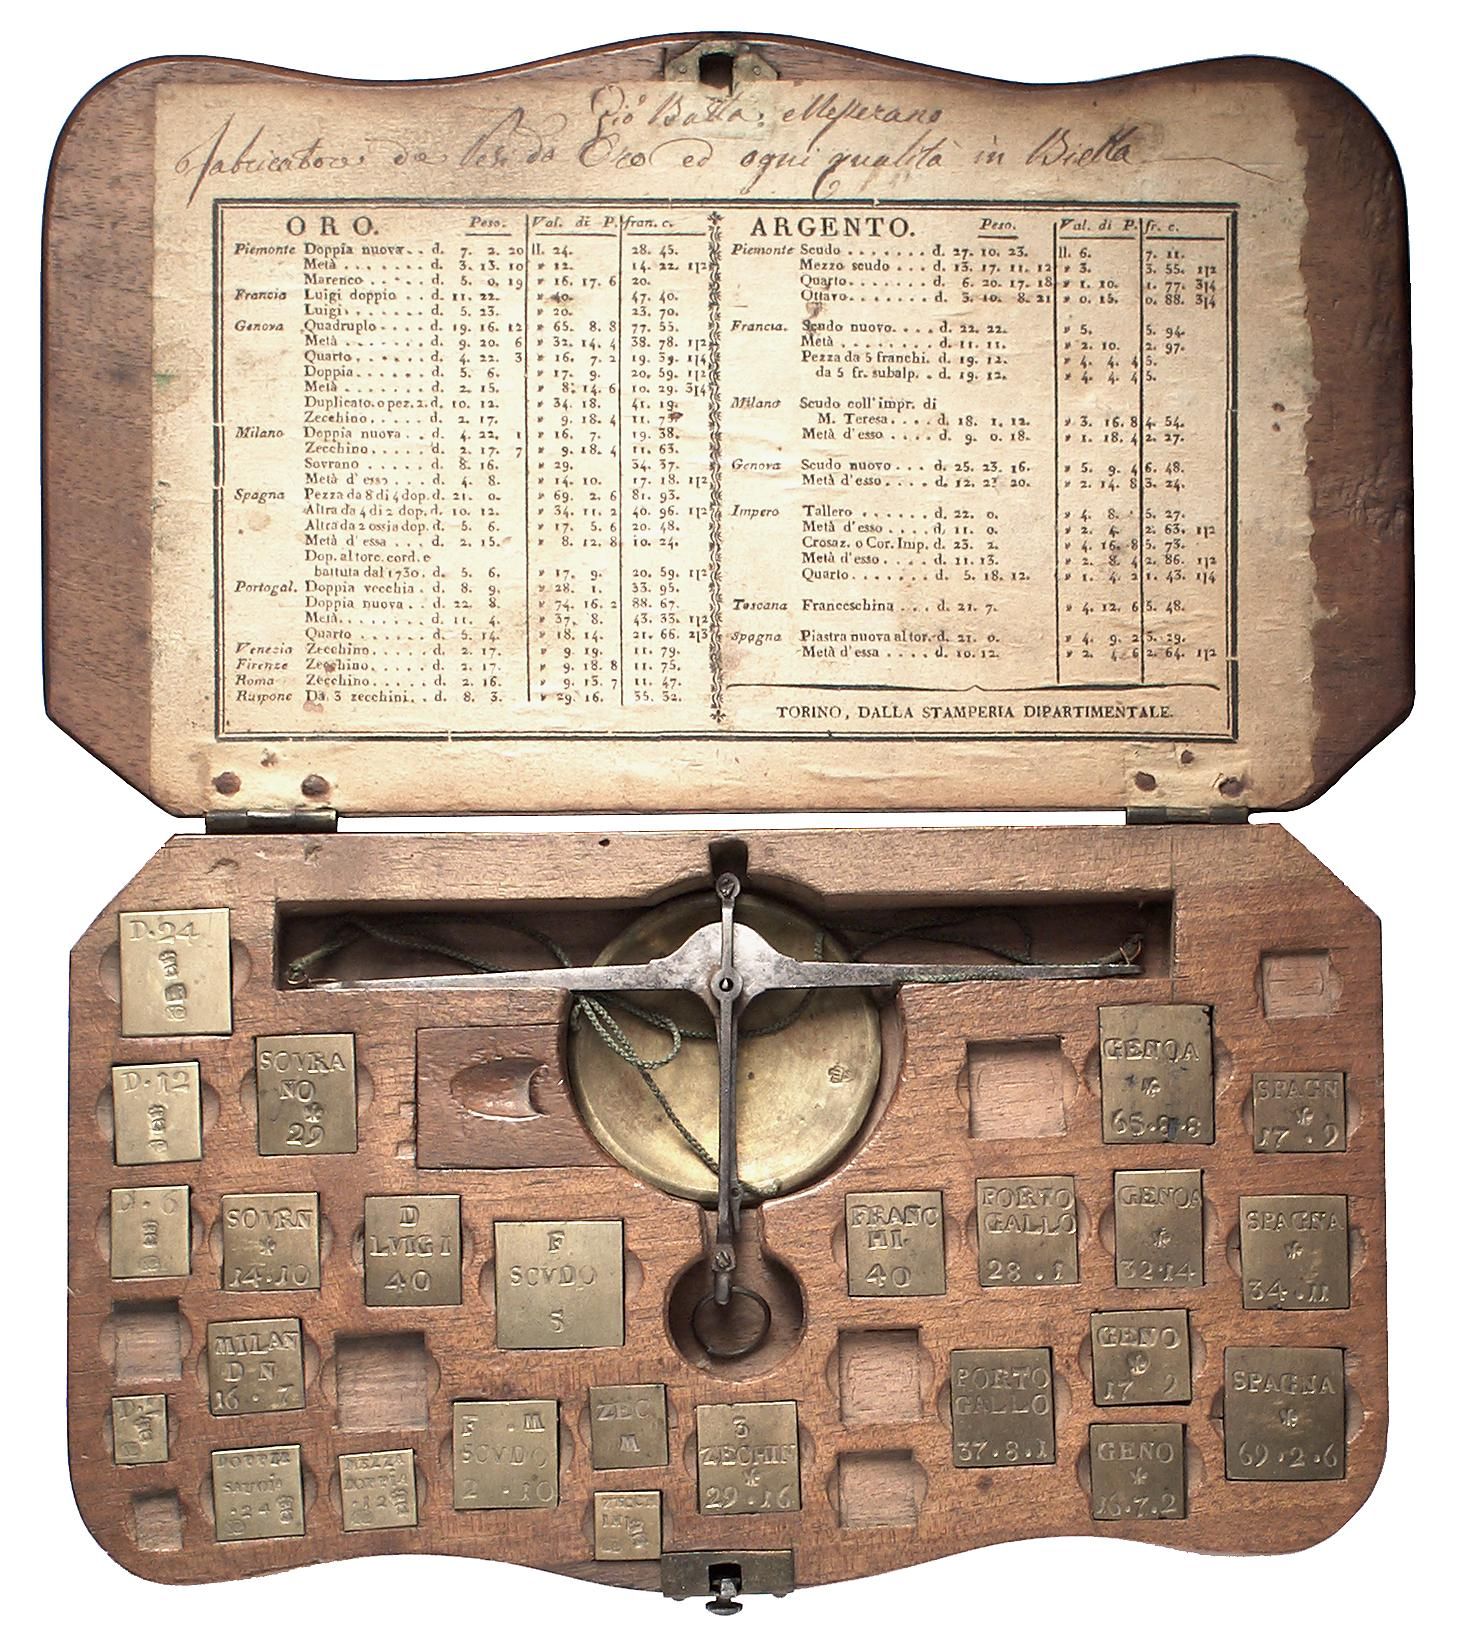 Gio Batta: Messerano
fabricatore da Pesi da Oro ed ogni qualità in Biella
ORO. Peso. Val. di P. fran. c.
Piemonte Doppia nuova . . d. 7. 2. 20 ll. 24. 28. 45.
Metà . . . . . . . d. 3. 13. 10 » 12. 14. 22. 1|2
Marenco . . . . . d. 5. 0. 19 » 16. 17. 6 20.
Francia Luigi doppio . . . d. 11. 22. » 40. 47. 40.
Luigi . . . . . . . d. 5. 23. » 20. 23. 70.
Genova Quadruplo . . . . d. 19. 16. 12 » 65. 8. 8 77. 55.
Metà . . . . . . . d. 9. 20. 6 » 32. 14. 4 38. 78. 1|2
Quarto . . . . . . d. 4. 22. 3 » 16. 7. 2 19. 39. 1|4
Doppia . . . . . . d. 5. 6. » 17. 9. 20. 59. 1|2
Metà . . . . . . . d. 2. 15. » 8. 14. 6 10. 29. 3|4
Duplicato. o pez. 2. d. 10. 12. » 34. 18. 41. 19.
Zecchino . . . . . d. 2. 17. » 9. 18. 4 11. 75.
Milano Doppia nuova . . d. 4. 22. 1 » 16. 7. 19. 38.
Zecchino . . . . . d. 2. 17. 7 » 9. 18. 4 11. 63.
Sovrano . . . . . d. 8. 16. » 29. 34. 37.
Metà d'esso . . . d. 4. 8. » 14. 10. 17. 18. 1|2
Spagna Pezza da 8 di 4 dop. d. 21. 0. » 69. 2. 6 81. 93.
Altra da 4 di 2 dop. d. 10. 12. » 34. 11. 2 40. 96. 1|2
Altra da 2 ossia dop. d. 5. 6. » 17. 5. 6 20. 48.
Metà d'essa . . . d. 2. 15. » 8. 12. 8 10. 24.
Dop. al torc. cord. e
battuta dal 1730. d. 5. 6. » 17. 9. 20. 59. 1|2
Portogal. Doppia vecchia . d. 8. 9. » 28. 1. 33. 95.
Doppia nuova . . d. 22. 8. » 74. 16. 2 88. 67.
Metà . . . . . . . d. 11. 4. » 37. 8. 43. 33. 1|2
Quarto . . . . . . d. 5. 14. » 18. 14. 21. 66. 2|3
Venezia Zecchino . . . . . d. 2. 17. » 9. 19. 11. 79.
Firenze Zecchino . . . . . d. 2. 17. » 9. 18. 8 11. 75.
Roma Zecchino . . . . . d. 2. 16. » 9. 13. 7 11. 47.
Ruspone Da 3 zecchini . . d. 8. 3. » 29. 16. 35. 32.
ARGENTO. Peso. Val. di P. fr. c.
Piemonte Scudo . . . . . . . d. 27. 10. 23. ll. 6. 7. 11.
Mezzo scudo . . . d. 13. 17. 11. 12 » 3. 3. 55. 1|2
Quarto . . . . . . . d. 6. 20. 17. 18 » 1. 10. 1. 77. 3|4
Ottavo . . . . . . . d. 3. 10. 8. 21 » 0. 15. 0. 88. 3|4
Francia. Scudo nuovo . . . . d. 22. 22. » 5. 5. 94.
Metà . . . . . . . . d. 11. 11. » 2. 10. 2. 97.
Pezza da 5 franchi. d. 19. 12. » 4. 4. 4 5.
da 5 fr. subalp. . d. 19. 12. » 4. 4. 4 5.
Milano Scudo coll'impr. di
M. Teresa . . . . d. 18. 1. 12. » 3. 16. 8 4. 54.
Metà d'esso . . . . d. 9. 0. 18. » 1. 18. 4 2. 27.
Genova Scudo nuovo . . . d. 25. 23. 16. » 5. 9. 4 6. 48.
Metà d'esso . . . . d. 12. 23. 20. » 2. 14. 8 3. 24.
Impero Tallero . . . . . . d. 22. 0. » 4. 8. 5. 27.
Metà d'esso . . . . d. 11. 0. » 2. 4. 2. 63. 1|2
Crosaz. o Cor. Imp. d. 23. 2. » 4. 16. 8 5. 73.
Metà d'esso . . . . d. 11. 13. » 2. 8. 4 2. 86. 1|2
Quarto . . . . . . . d. 5. 18. 12. » 1. 4. 2 1. 43. 1|4
Toscana Franceschina . . . d. 21. 7. » 4. 12. 6 5. 48.
Spagna Piastra nuova al tor. d. 21. 0. » 4. 9. 2 5. 29.
Metà d'essa . . . . d. 10. 12. » 2. 4. 6 2. 64. 1|2
TORINO, DALLA STAMPERIA DIPARTIMENTALE.
D·24
D·12
SOVRA
NO
29
GENOA
65·8·8
SPAGN
17·9
D·6
SOVRN
14·10
D
LVIGI
40
F
SCVDO
S
FRANC
HI·
40
PORTO
GALLO
28·1
GENOA
32·14
SPAGNA
34·11
MILAN
D·N
16·7
GENO
17·9
PORTO
GALLO
37·8·1
SPAGNA
69·2·6
F·M
SCVDO
2·10
ZEC
M
3
ZECHIN
29·16
GENO
16·7·2
DOPPIA
SAVOIA
·24
MEZZA
DOPPIA
·12